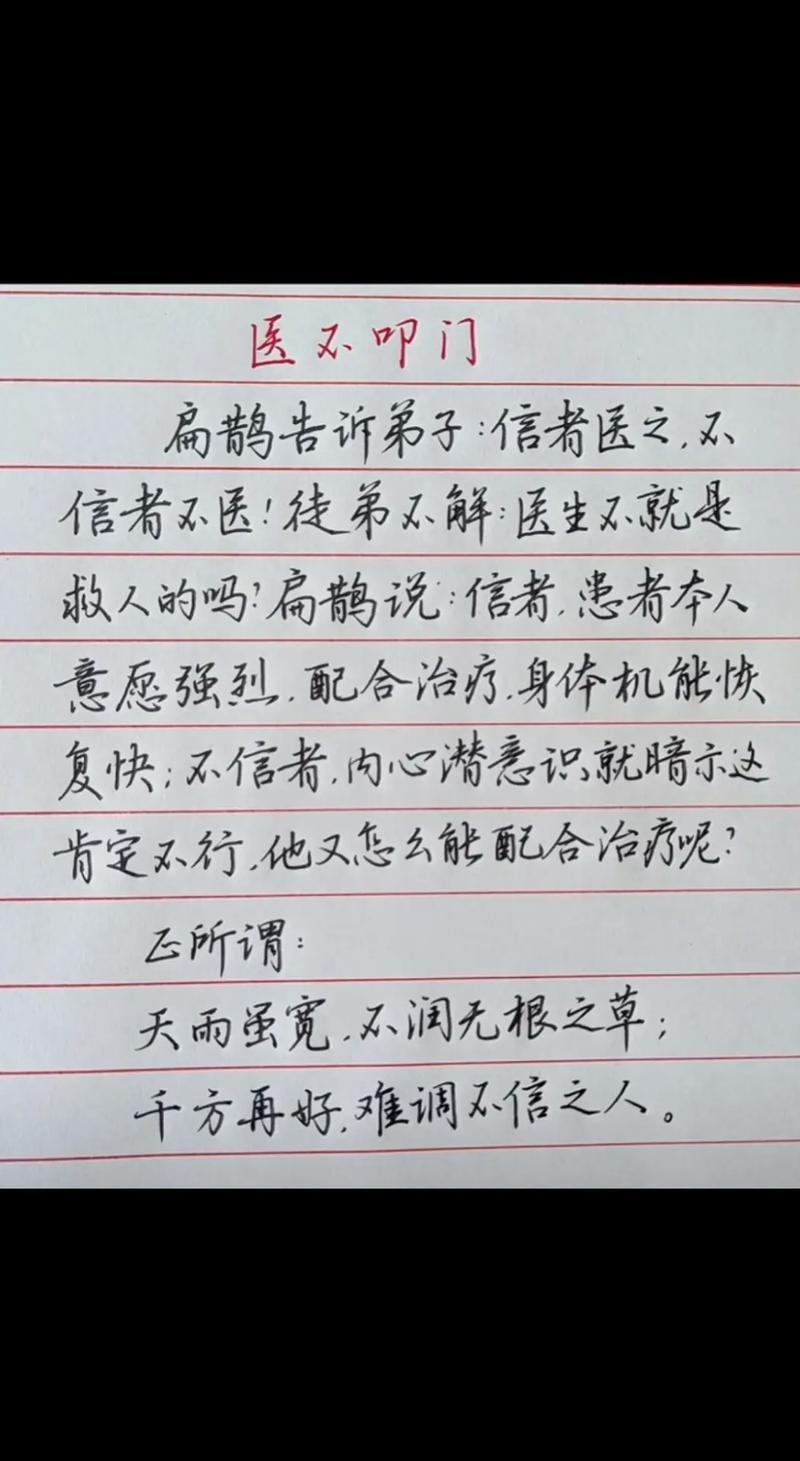 医不叩门
扁鹊告诉弟子:信者医之,不
信者不医!徒弟不解:医生不就是
救人的吗?扁鹊说:信者,患者本人
意愿强烈,配合治疗,身体机能恢
复快;不信者,内心潜意识就暗示这
肯定不行,他又怎么能配合治疗呢?
正所谓:
天雨虽宽,不润无根之草;
千方再好,难调不信之人。